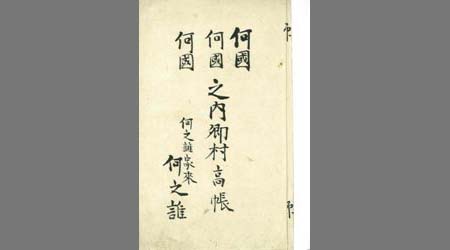 何國
何國
何國
之内郷村高帳
何之誰家來
何之誰